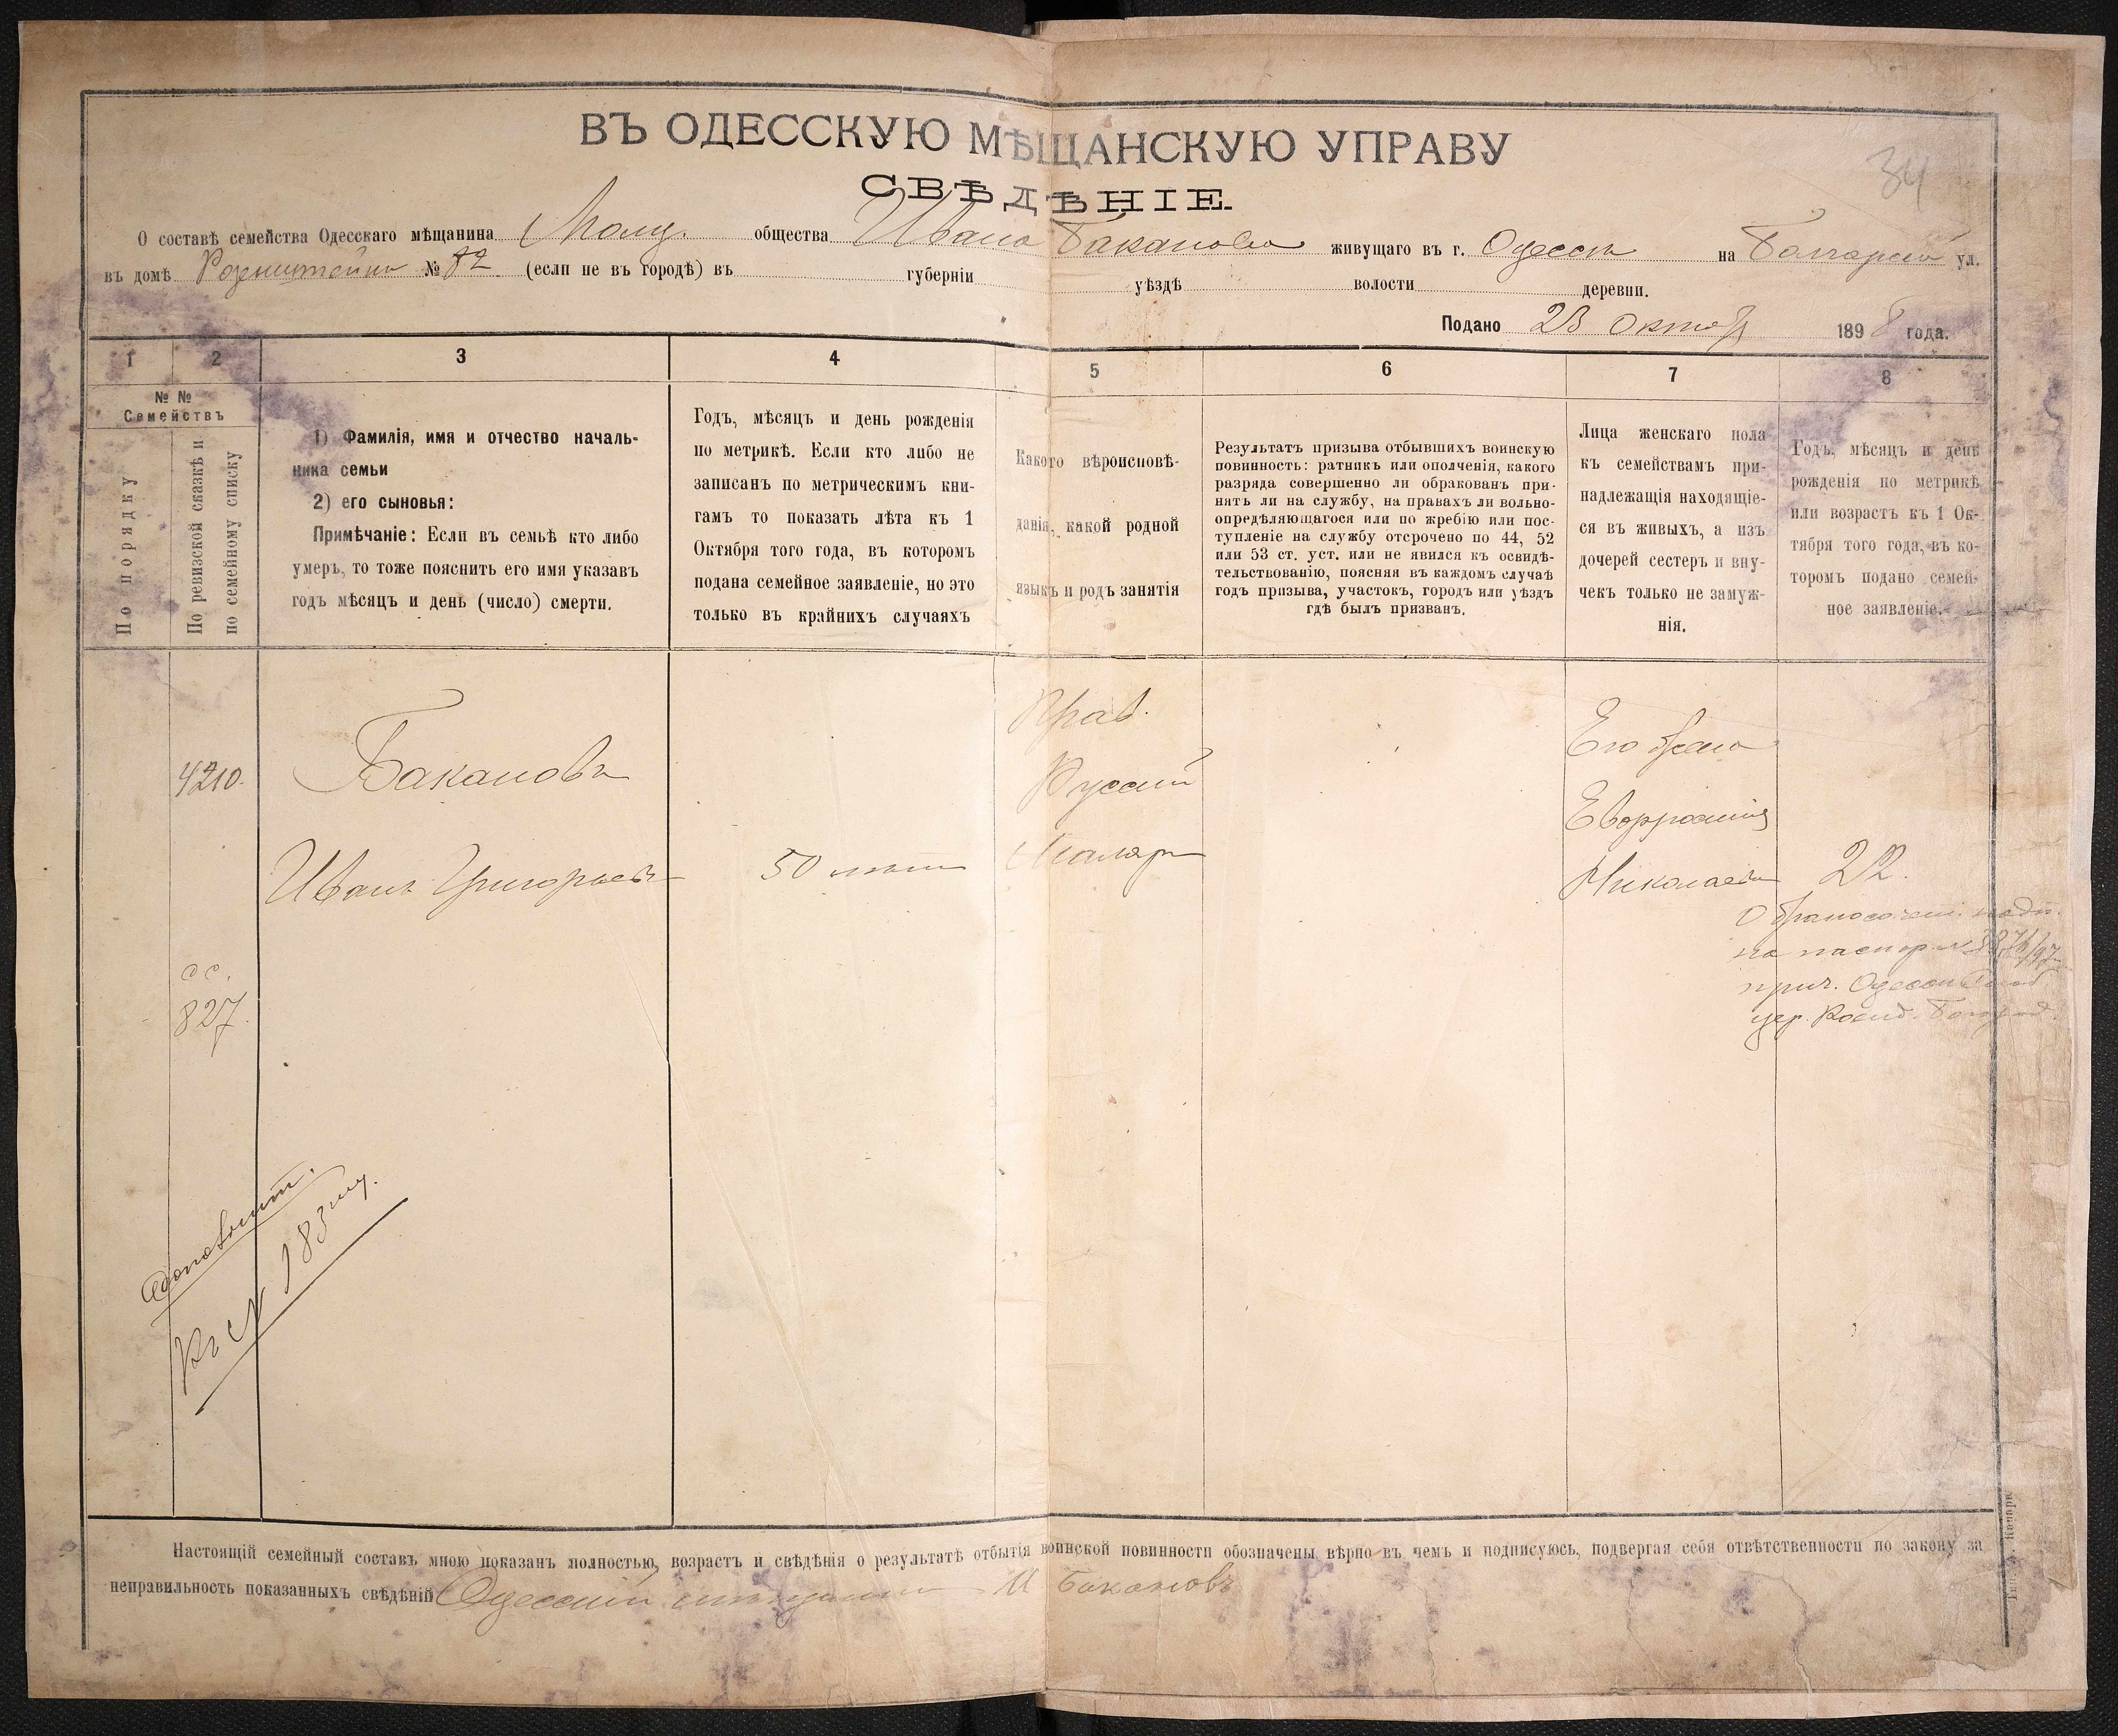 34
ВЪ ОДЕССКУЮ МѢЩАНСКУЮ УПРАВУ
СВѢДѢНІЕ.
О составѣ семейства Одесскаго мѣщанина общества Ивана Баканова живущаго въ г. Одессѣ на ул.
въ домѣ Розенштейна № (если не въ городѣ) въ губерніи уѣздѣ волости деревни.
Подано 23 Октяб 1898 года.
1 2 3 4 5 6 7 8
№ №
Семействъ
По порядку
По ревизской сказкѣ и
по семейному списку
1) Фамилія, имя и отчество началь-
ника семьи
2) его сыновья:
Примѣчаніе: Если въ семьѣ кто либо
умеръ, то тоже пояснить его имя указавъ
годъ мѣсяцъ и день (число) смерти.
Годъ, мѣсяцъ и день рожденія
по метрикѣ. Если кто либо не
записанъ по метрическимъ кни-
гамъ то показать лѣта къ 1
Октября того года, въ которомъ
подана семейное заявленіе, но это
только въ крайнихъ случаяхъ
Какого вѣроисповѣ-
данія, какой родной
языкъ и родъ занятія
Результатъ призыва отбывшихъ воинскую
повинность: ратникъ или ополченія, какого
разряда совершенно ли обракованъ при-
нятъ ли на службу, на правахъ ли вольно-
опредѣляющагося или по жребію или пос-
тупленіе на службу отсрочено по 44, 52
или 53 ст. уст. или не явился къ освидѣ-
тельствованію, поясняя въ каждомъ случаѣ
годъ призыва, участокъ, городъ или уѣздъ
гдѣ былъ призванъ.
Лица женскаго пола
къ семействамъ при-
надлежащія находящіе-
ся въ живыхъ, а изъ
дочерей сестеръ и вну-
чекъ только не замуж-
нія.
Годъ, мѣсяцъ и день
рожденія по метрикѣ
или возрастъ къ 1 Ок-
тября того года, въ ко-
торомъ подано семей-
ное заявленіе.
4210.
Бакановъ
Иванъ Григорьевъ
50 лѣтъ
Прав.
Русскій
Маляръ
Его жена
Евфросинія
Николаева
22.
О бракосочет. надп.
на паспор. №
прич. Одесск
цер. Рожд. Богород.
сс.
827.
Къ № 183
Настоящій семейный составъ мною показанъ полностью, возрастъ и свѣдѣнія о результатѣ отбытія воинской повинности обозначены вѣрно въ чемъ и подписуюсь, подвергая себя отвѣтственности по закону за
неправильность показанныхъ свѣдѣній Одесскій мѣщанинъ И Бакановъ